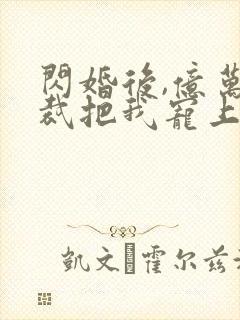 閃婚後,億萬
裁把我寵上
凱文·霍尔兹